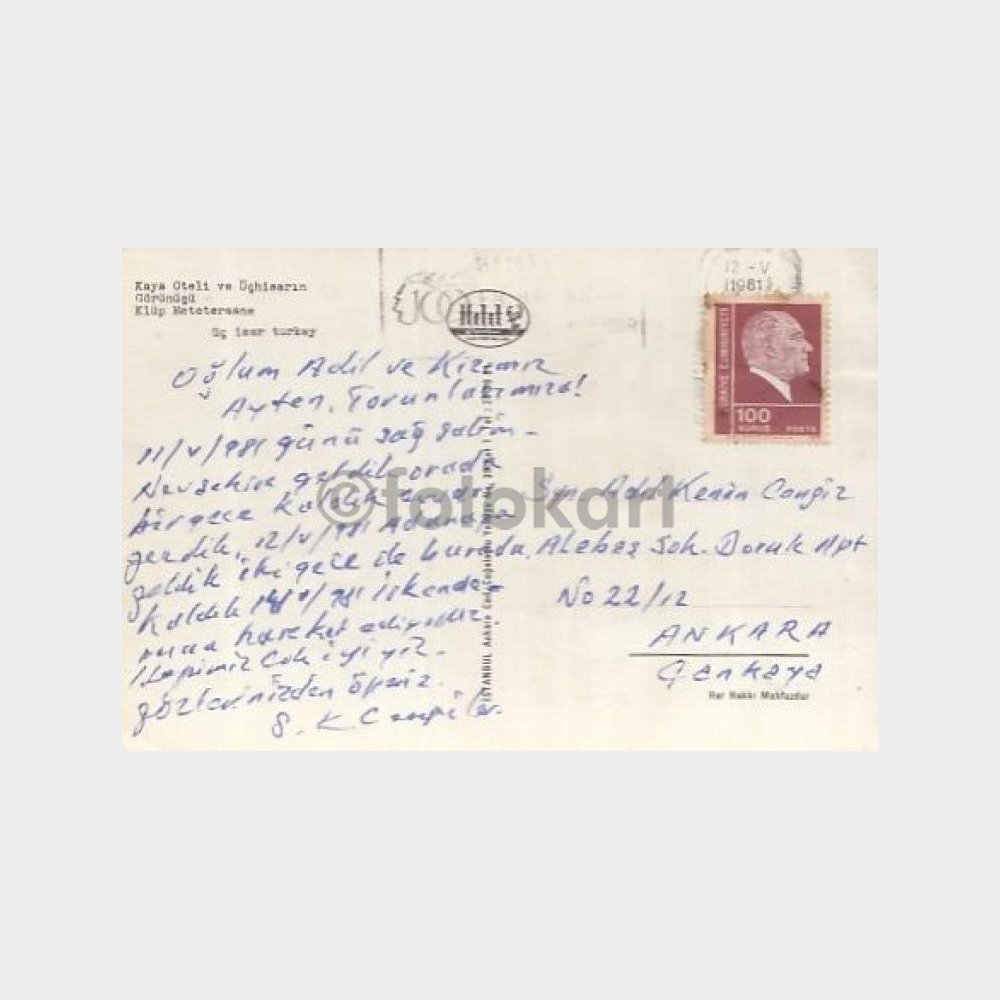 Kaya Oteli ve Üçhisarın
Görünüşü
Klüp Metoterasne
Üç isar turkey
12 -V
1981
TÜRKİYE CUMHURİYETİ
100
KURUŞ POSTA
Oğlum Adil ve Kızımız
Ayten, Torunlarımıza!
11/V/981 günü sağ salim
Nevşehire geldik orada
bir gece kaldık
gezdik, 12/V/981 Adana
geldik iki gece de burada
kaldık /V/981 İskende-
runa hareket ediyoruz.
Hepimiz çok iyiyiz.
gözlerinizden öperiz.
S. K. Cengizler.
©fotokart
İSTANBUL Ankara Cad.
Sn. Adil Kenan Cengiz
Sok. Doruk Apt
No 22/12
ANKARA
Çankaya
Her Hakkı Mahfuzdur